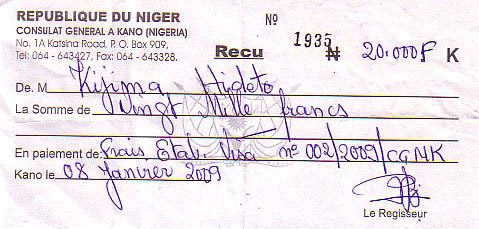 REPUBLIQUE DU NIGER
CONSULAT GENERAL A KANO (NIGERIA)
No. 1A Katsina Road, P. O. Box 909,
Tel: 064 - 643427, Fax: 064 - 643328.
No 1935
Recu ₦ 20.000F K
De. M Kijima Hideto
La Somme de Vingt Mille francs
En paiement de: Frais Etab. Visa n° 002/2009/CGNK
Kano le 08 Janvier 2009
Le Regisseur